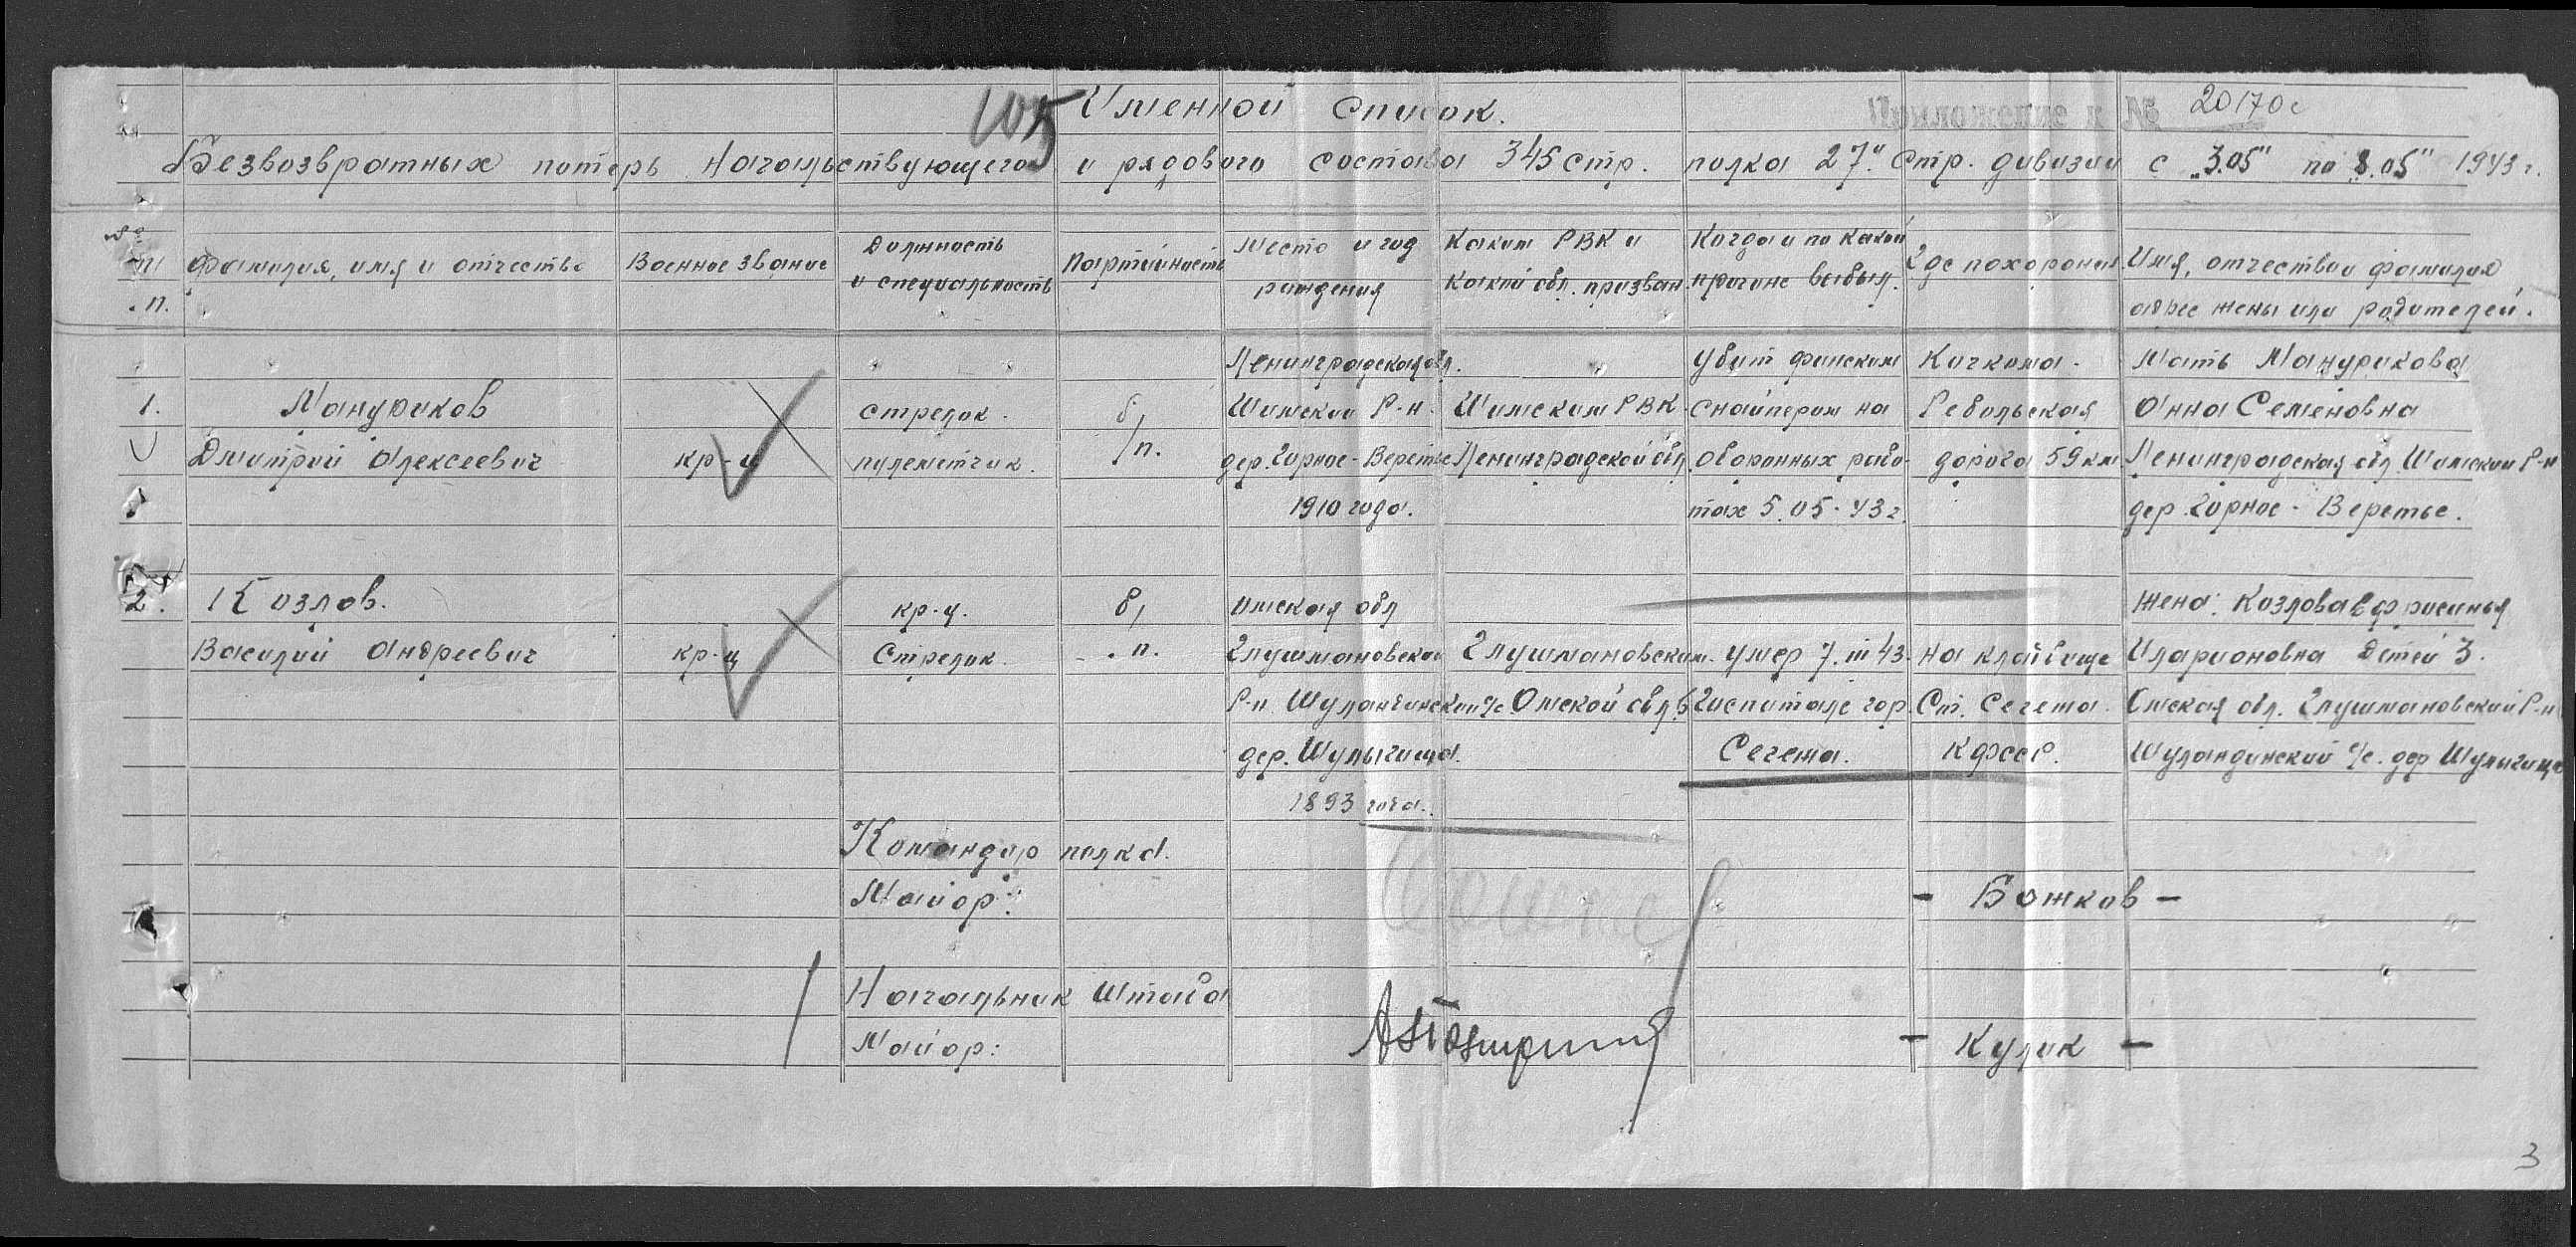 105 Именной список.
Приложение к № 20170с
Безвозвратных потерь Начальствующего и рядового состава 345 стр. полка 27" стр. дивизии с "3.05" по "8.05" 1943 г.
№ п.п. Фамилия, имя и отчество
Военное звание
Должность
и специальность
Партийность
Место и год
рождения
Каким РВК и
какой обл. призван.
Когда и по какой
причине выбыл.
Где похоронен
Имя, отчество и фамилия
адрес жены или родителей.
1. Мануриков
Дмитрий Алексеевич
кр-ц
стрелок.
пулеметчик.
б/п.
Ленинградская обл.
Шимский р-н.
дер. Горное-Веретье
1910 года.
Шимским РВК
Ленинградской обл.
Убит финским
снайпером на
оборонных рабо-
тах 5.05.43 г.
Кочкома-
Ребольская
дорога 59 км
Мать Манурикова
Анна Семеновна
Ленинградская обл. Шимский р-н
дер. Горное-Веретье.
2. Козлов.
Василий Андреевич
кр-ц
кр-ц.
Стрелок.
б/п.
Омская обл
Глушмановский
р-н Шуландинский с/с
дер. Шулыгища.
1893 года.
Глушмановским.
Омской обл.
умер 7.III 43.
в госпитале гор
Сегежа.
на кладбище
Ст. Сегежа.
КФССР.
жена: Козлова Ефросинья
Иларионовна Детей 3.
Омская обл. Глушмановский р-н
Шуландинский с/с. дер Шулыгища
Командир полка.
Майор:
- Божков -
Начальник штаба
Майор:
- Кулик -
3